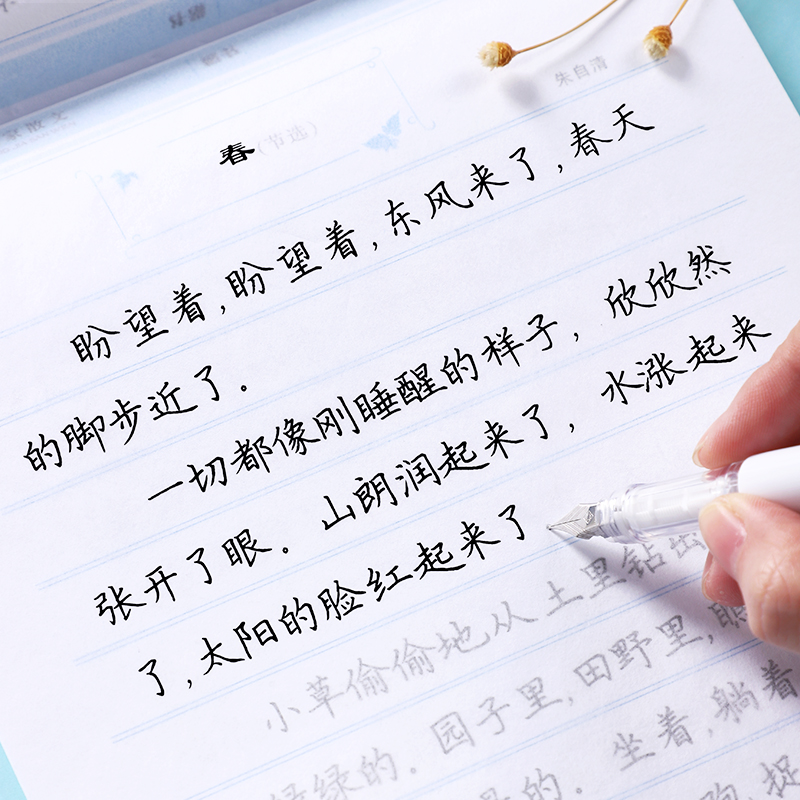 朱自清
春(节选)
盼望着,盼望着,东风来了,春天
的脚步近了.
一切都像刚睡醒的样子,欣欣然
张开了眼。山朗润起来了,水涨起来
了,太阳的脸红起来了
小草偷偷地从土里钻出
绿的.园子里,田野里,
的.坐着,躺着
捉